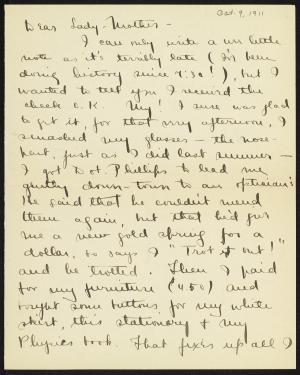 Oct. 9, 1911
Dear Lady-Mother -
I can only write a wee little
note as it's terribly late (I've been
doing history since 7:30!), but I
wanted to tell you I received the
check O.K. My! I sure was glad
to get it, for that very afternoon, I
smashed my glasses - the nose-
part, just as I did last summer -
I got Dot Phillips to lead me
gently down-town to an optician's
He said that he couldn't mend
them again, but that he'd give
me a new gold spring for a
dollar, so says I "Trot it out!"
and he trotted. Then I paid
for my furniture ($4.50) and
bought some buttons for my white
skirt, this stationery & my
Physics book. That fixes up all I